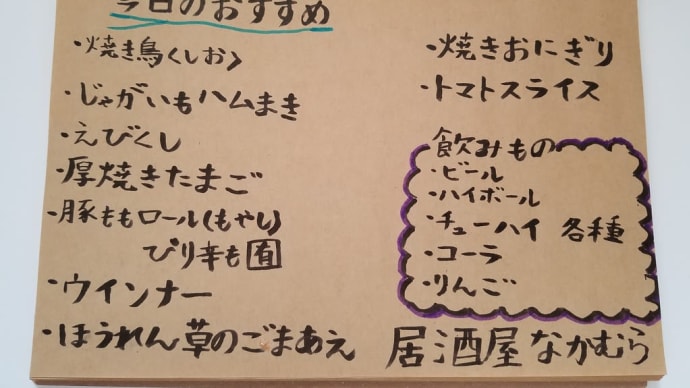 今日のおすすめ
・焼き鳥〈しお〉
・じゃがいもハムまき
・えびくし
・厚焼きたまご
・豚ももロール(もやし)
ぴり辛も有
・ウインナー
・ほうれん草のごまあえ
・焼きおにぎり
・トマトスライス
飲みもの
・ビール
・ハイボール
・チューハイ 各種
・コーラ
・りんご
居酒屋なかむら